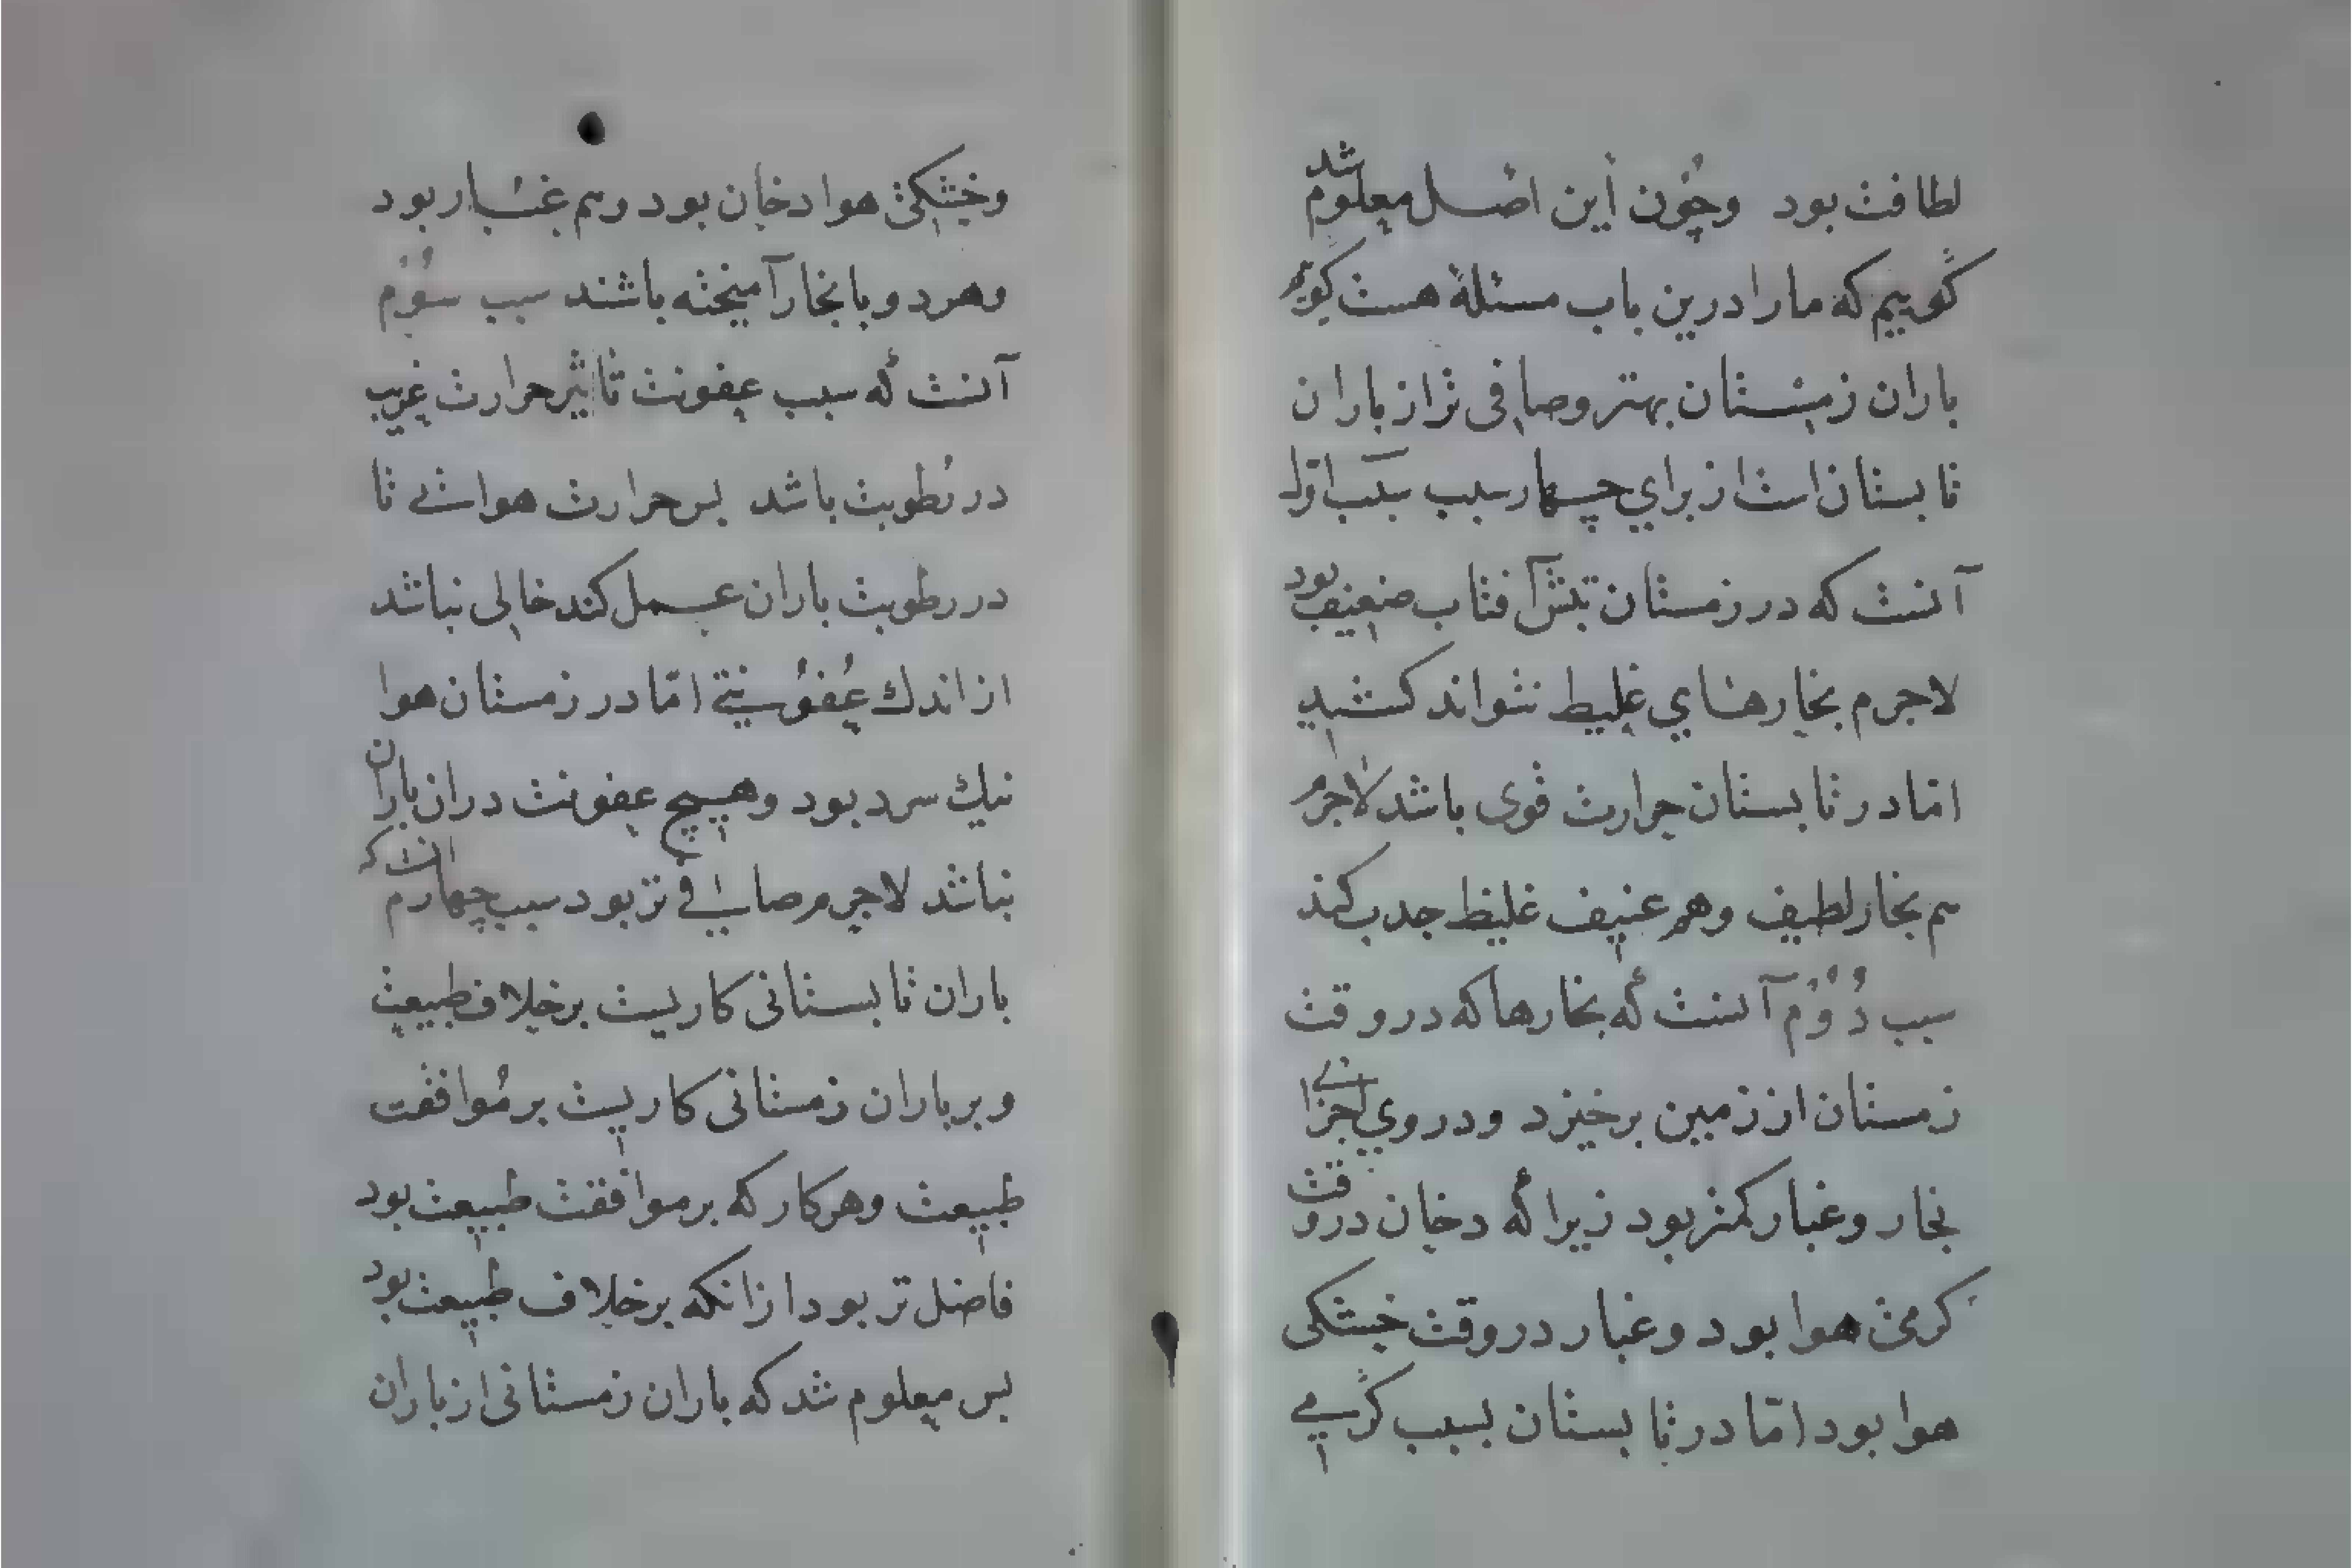 لطافت بود وچون این اصل معلوم شد
کوییم که ما را درین باب مسئلة هست کویم
باران زمستان بهتر وصافی تر از باران
تابستان است از براي چهار سبب سبب اوّل
آنست که در زمستان تبش آفتاب ضعیف بود
لاجرم بخارهاي غلیظ نتواند کشید
امّا در تابستان حرارت قوی باشد لاجرم
هم بخار لطیف وهم عنیف غلیظ جدب کند
سبب دُوُم آنست که بخارها که در وقت
زمستان از زمین برخیزد ودروي اجزا
بخار وغبار کمتر بود زیرا که دخان در وقت
کرمی هوا بود وغبار در وقت خشکی
هوا بود امّا در تابستان بسبب کرمی
وخشکی هوا دخان بود وهم غبار بود
وهر دو با بخار آمیخته باشند سبب سوُم
آنست که سبب عفونت تاثیر حرارت غریب
در رُطوبت باشد بس حرارت هوائی تا
در رطوبت باران عمل کند خالی نباشد
از اندك عُفوُنتی امّا در زمستان هوا
نیك سرد بود وهیچ عفونت دران باران
نباشد لاجرم صافی تر بود سبب چهارم انست که
باران تابستانی کاریست برخلاف طبیعت
وبر باران زمستانی کاریست بر مُوافقت
طبیعت وهر کار که بر موافقت طبیعت بود
فاضل تر بود از انکه برخلاف طبیعت بود
بس معلوم شد که باران زمستانی از باران